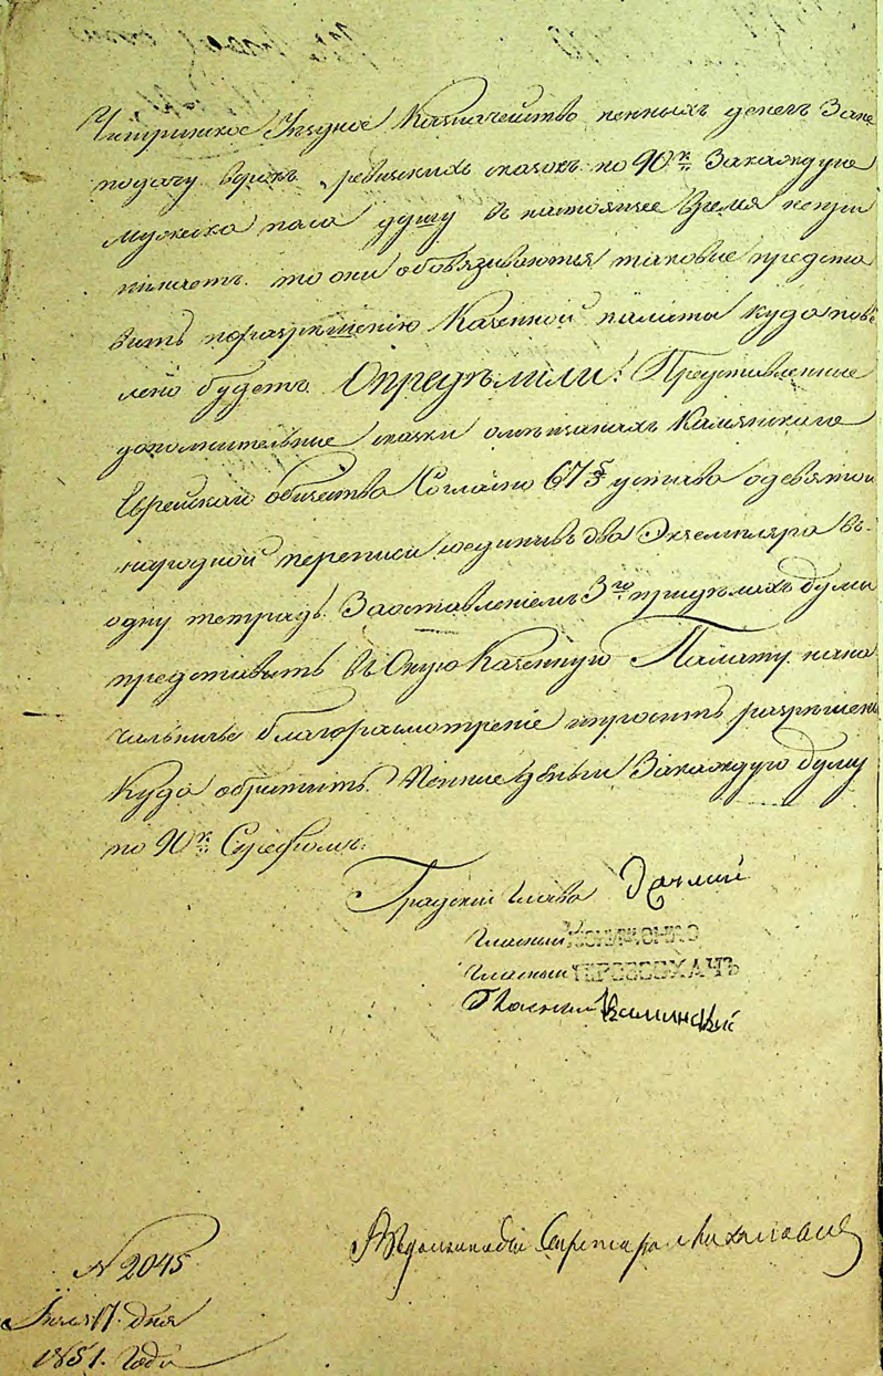 Чигринское Уездное Казначейство пенныхъ денегъ Зане
подачу всрокъ, ревизскихъ сказокъ по 90 к. Закаждую
Мужеска пола душу въ настоящее Время непри
нимаетъ. то они обовязиваются таковые предста
вить поразрѣшенію Казенной палати куда пове
лено будетъ. Опредѣлили: Представленние
дополнительние сказки омѣщанахъ Каменскаго
Еврейскаго общества Согласно 67 § устава одевятой
народной переписи соединивъ два Экземпляра въ
одну тетрадь. Заоставленіемъ 3го придѣлахъ думи
представить въ Оную Казенную Палату нана
чальничье благоразсмотреніе ипросить разрѣшени
Куда обратить. Пенние деньги Закаждую душу
по 90 к. Серебромъ.
Градский Глава
Гласный КОНИЧЕНКО
Гласный ПЕРЕВОХАЧЪ
Гласный Каминский
Секретарь
№ 2045
17. дня
1851. Года